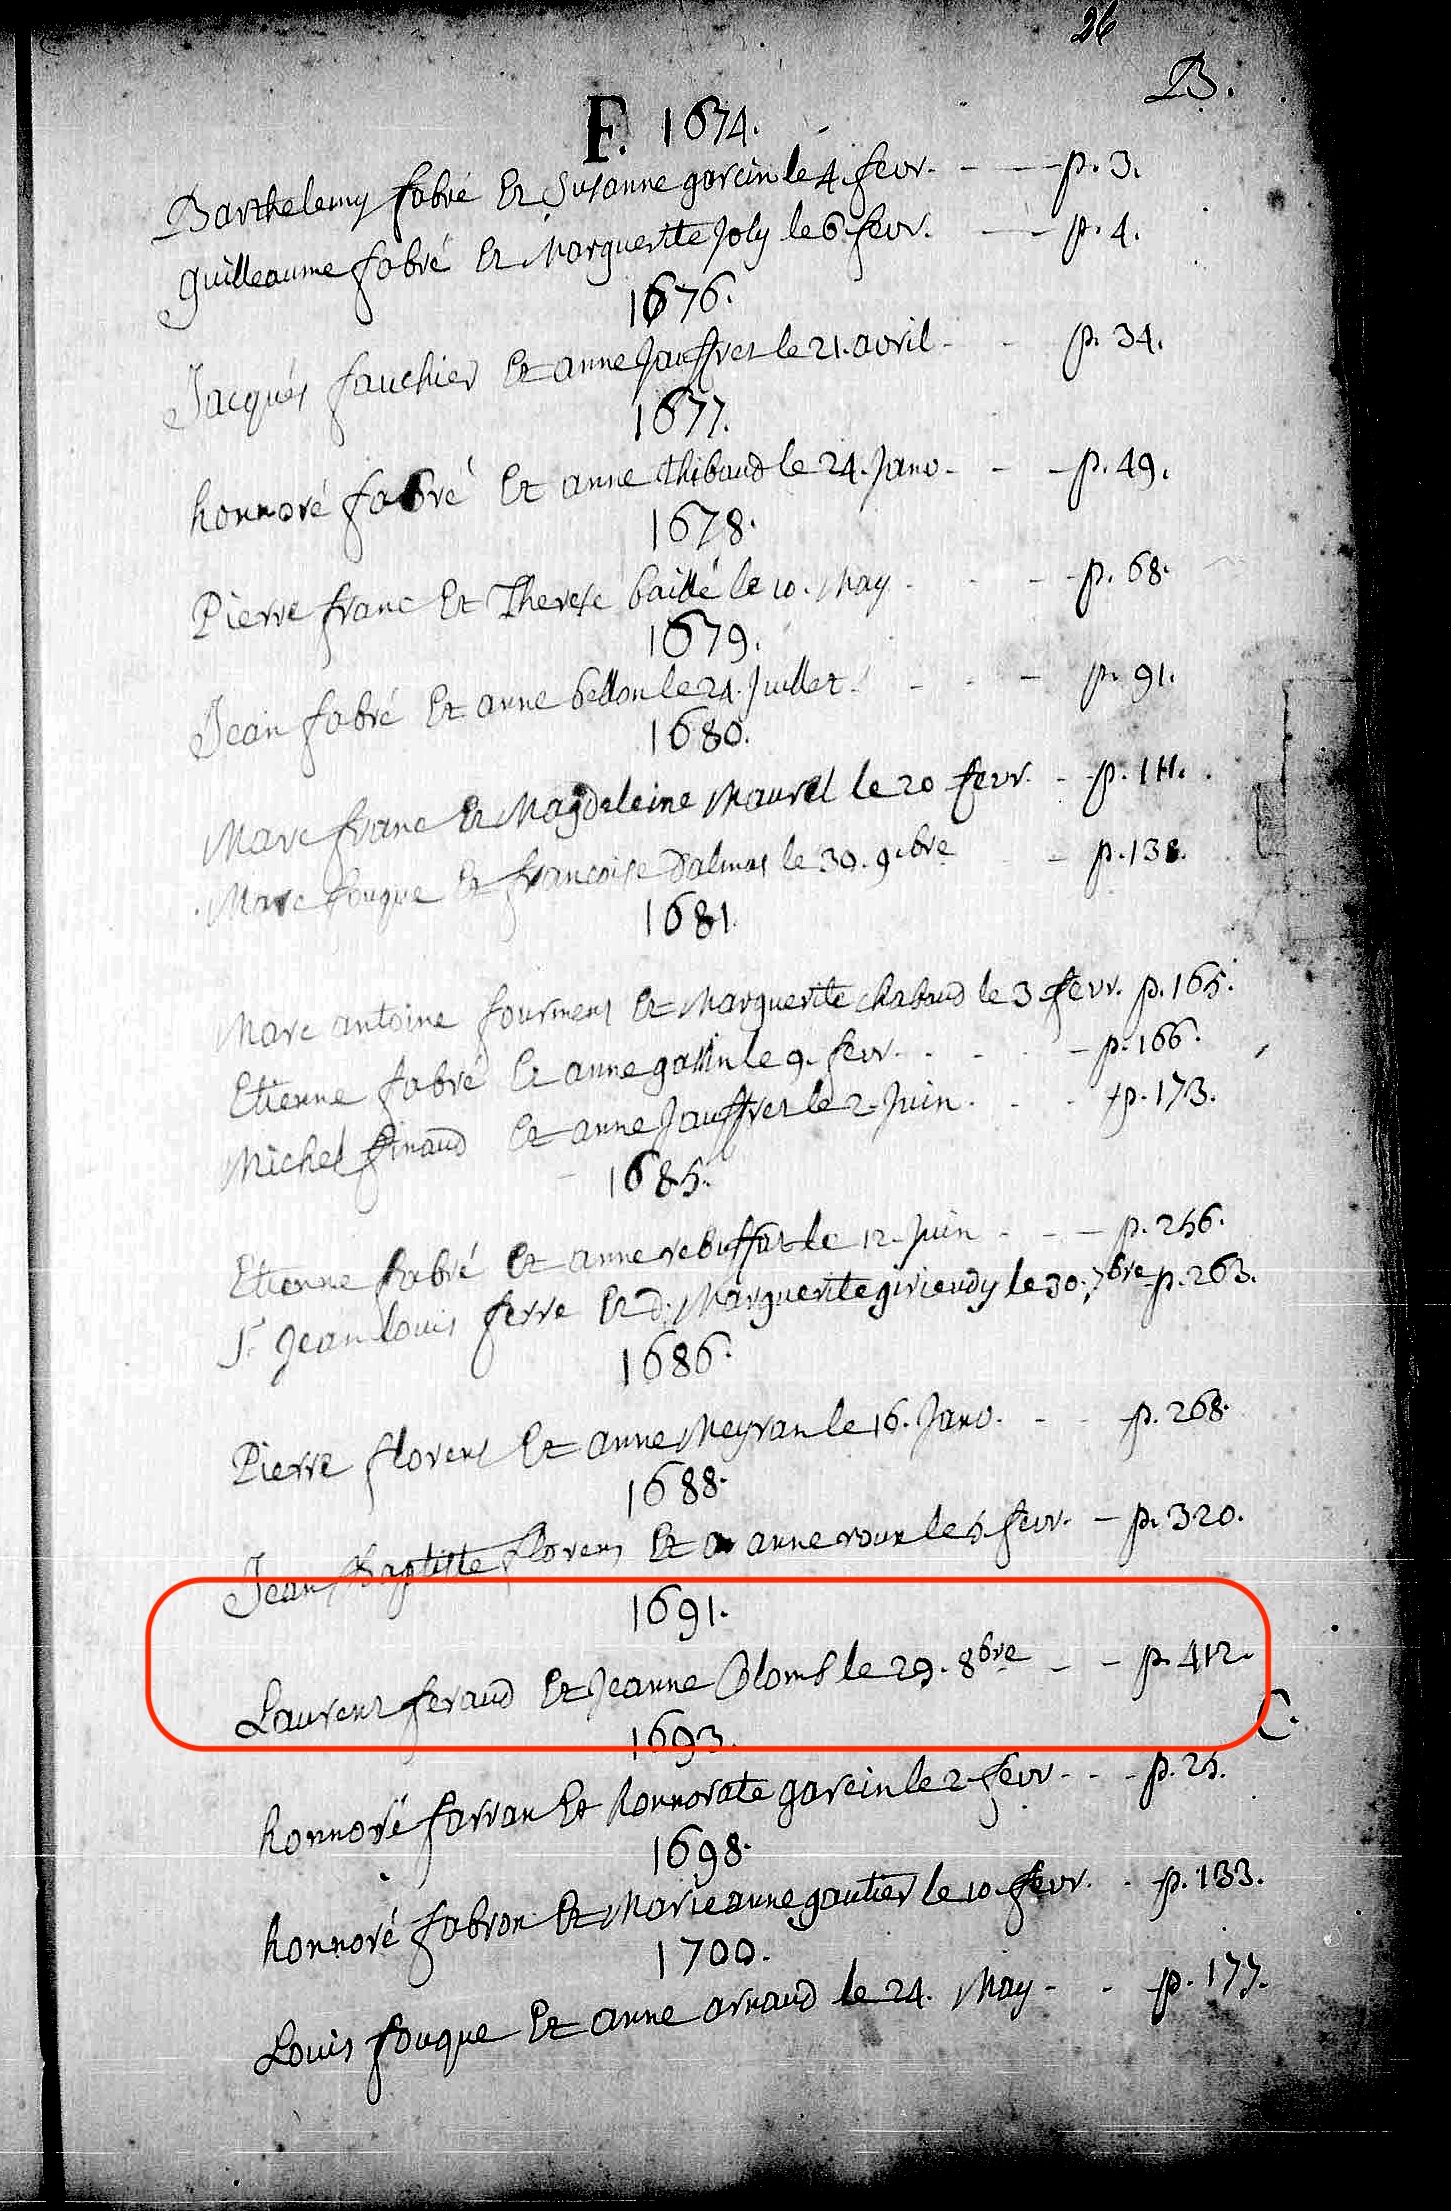 26
B.
F. 1674.
Barthelemy fabré Et Susanne garcin le 4. fevr. - - p. 3.
guilleaume fabré Et Marguerite Joly le 6 fevr. - - p. 4.
1676.
Jacques fauchier Et anne Jauffret le 21. avril - - p. 34.
1677.
honnoré fabré Et anne thibaud le 24. Janv - - - p. 49.
1678.
Pierre franc Et Therese baille le 10. May - - - p. 68.
1679.
Jean fabré Et anne bellon le 24. Juillet. - - - p. 91.
1680.
Marc franc Et Magdeleine Maurel le 20 fevr. - - p. 111.
Marc fouque Et francoise Dalmas le 30. 9bre - p. 138.
1681.
Marc antoine fourment Et Marguerite chabaud le 3 fevr. p. 165.
Etienne fabré Et anne gassin le 9. fevr. - - - p. 166.
Michel finaud Et anne Jauffret le 2. Juin. - - p. 173.
1685.
Etienne fabré Et anne rebuffat le 12. Juin - - - p. 256.
Sr. Jean louis ferre Et d. Marguerite giriendy le 30. 7bre p. 263.
1686.
Pierre florens Et anne Meyran le 16. Janv. - - p. 268.
1688.
Jean Baptiste florens Et anne roux le 5 fevr. - p. 320.
1691.
Laurens feraud Et Jeanne Blomb le 29. 8bre - - p. 412.
C.
1693.
honnoré farran Et honnorate garcin le 2. fevr. - - p. 25.
1698.
honnoré fabron Et Marie anne gautier le 10. fevr. - p. 133.
1700.
Louis fouque Et anne arnaud le 24. May - - p. 177.